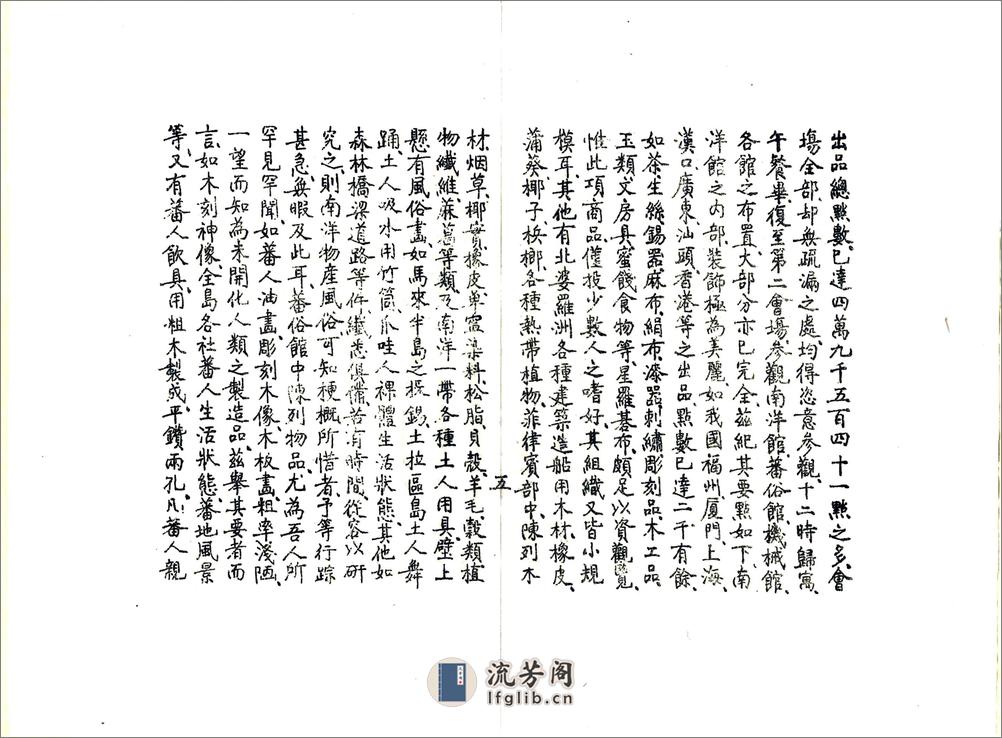 出品總點數、已達四萬九千五百四十一點之多、會
場全部、却無疏漏之處、均得恣意參觀、十二時歸寓、
午餐畢、復至第二會場、參觀南洋館、蕃俗館、機械館、
各館之布置、大部分亦已完全、茲紀其要點如下、南
洋館之內部、裝飾極為美麗、如我國福州、厦門、上海、
漢口、廣東、汕頭、香港等之出品、點數已達二千有餘、
如茶、生絲、錫器、麻布、絹布、漆器、刺繡、彫刻品、木工品、
玉類、文房具、蜜餞食物等、星羅碁布、頗足以資觀覽、
惟此項商品、僅投少數人之嗜好、其組織又皆小規
模耳、其他有北婆羅洲、各種建築造船用木材、橡皮、
蒲葵、椰子、檳榔、各種熱帶植物、菲律賓部中、陳列木
材、烟草、椰實、橡皮、單寧、染料、松脂、貝殼、羊毛、穀類、植
物纖維、蔴葛等類、及南洋一帶各種土人用具、壁上
懸有風俗畫、如馬來半島之採錫、土拉區島土人舞
踊、土人吸水用竹筒、爪哇人裸體生活狀態、其他如
森林橋梁道路等件、纖悉俱備、苦有時間、從容以研
究之、則南洋物產風俗、可知梗概、所惜者予等行踪
甚急、無暇及此耳、蕃俗館中陳列物品、尤為吾人所
罕見罕聞、如蕃人油畫、彫刻木像、木板畫、粗率淺陋、
一望而知為未開化人類之製造品、茲舉其要者而
言、如木刻神像、全島各社蕃人生活狀態、蕃地風景
等、又有蕃人飲具、用粗木製成、平鑽兩孔、凡蕃人親
五
流芳阁
lfglib.cn